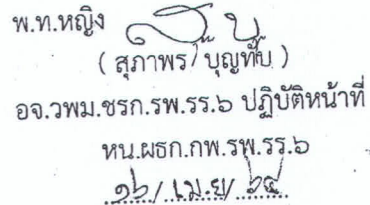 พ.ท.หญิง
( สุภาพร บุญทับ )
อจ.วพม.ชรก.รพ.รร.๖ ปฏิบัติหน้าที่
หน.ผธก.กพ.รพ.รร.๖
๑๖/ เม.ย/ ๖๔